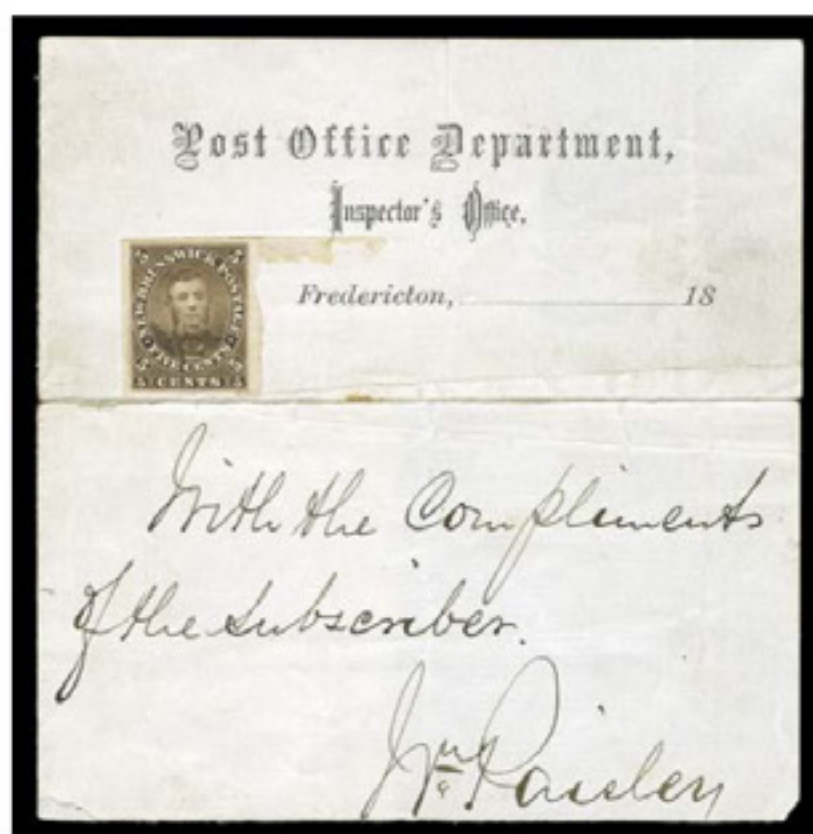 Post Office Department,
Inspector's Office.
Fredericton, 18
5 NEW BRUNSWICK POSTAGE 5
5 FIVE CENTS 5
5 CENTS 5
With the Compliments
of the subscriber.
Wm Paisley